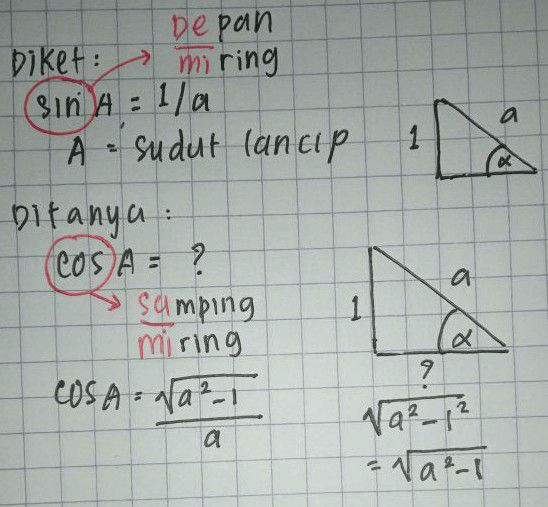 Depan
Diket: miring
sin A = 1/a
A = sudut lancip
1 a α
Ditanya :
cos A = ?
samping
miring
1 a α
?
cos A = √(a²-1)/a
√(a²-1²)
= √(a²-1)